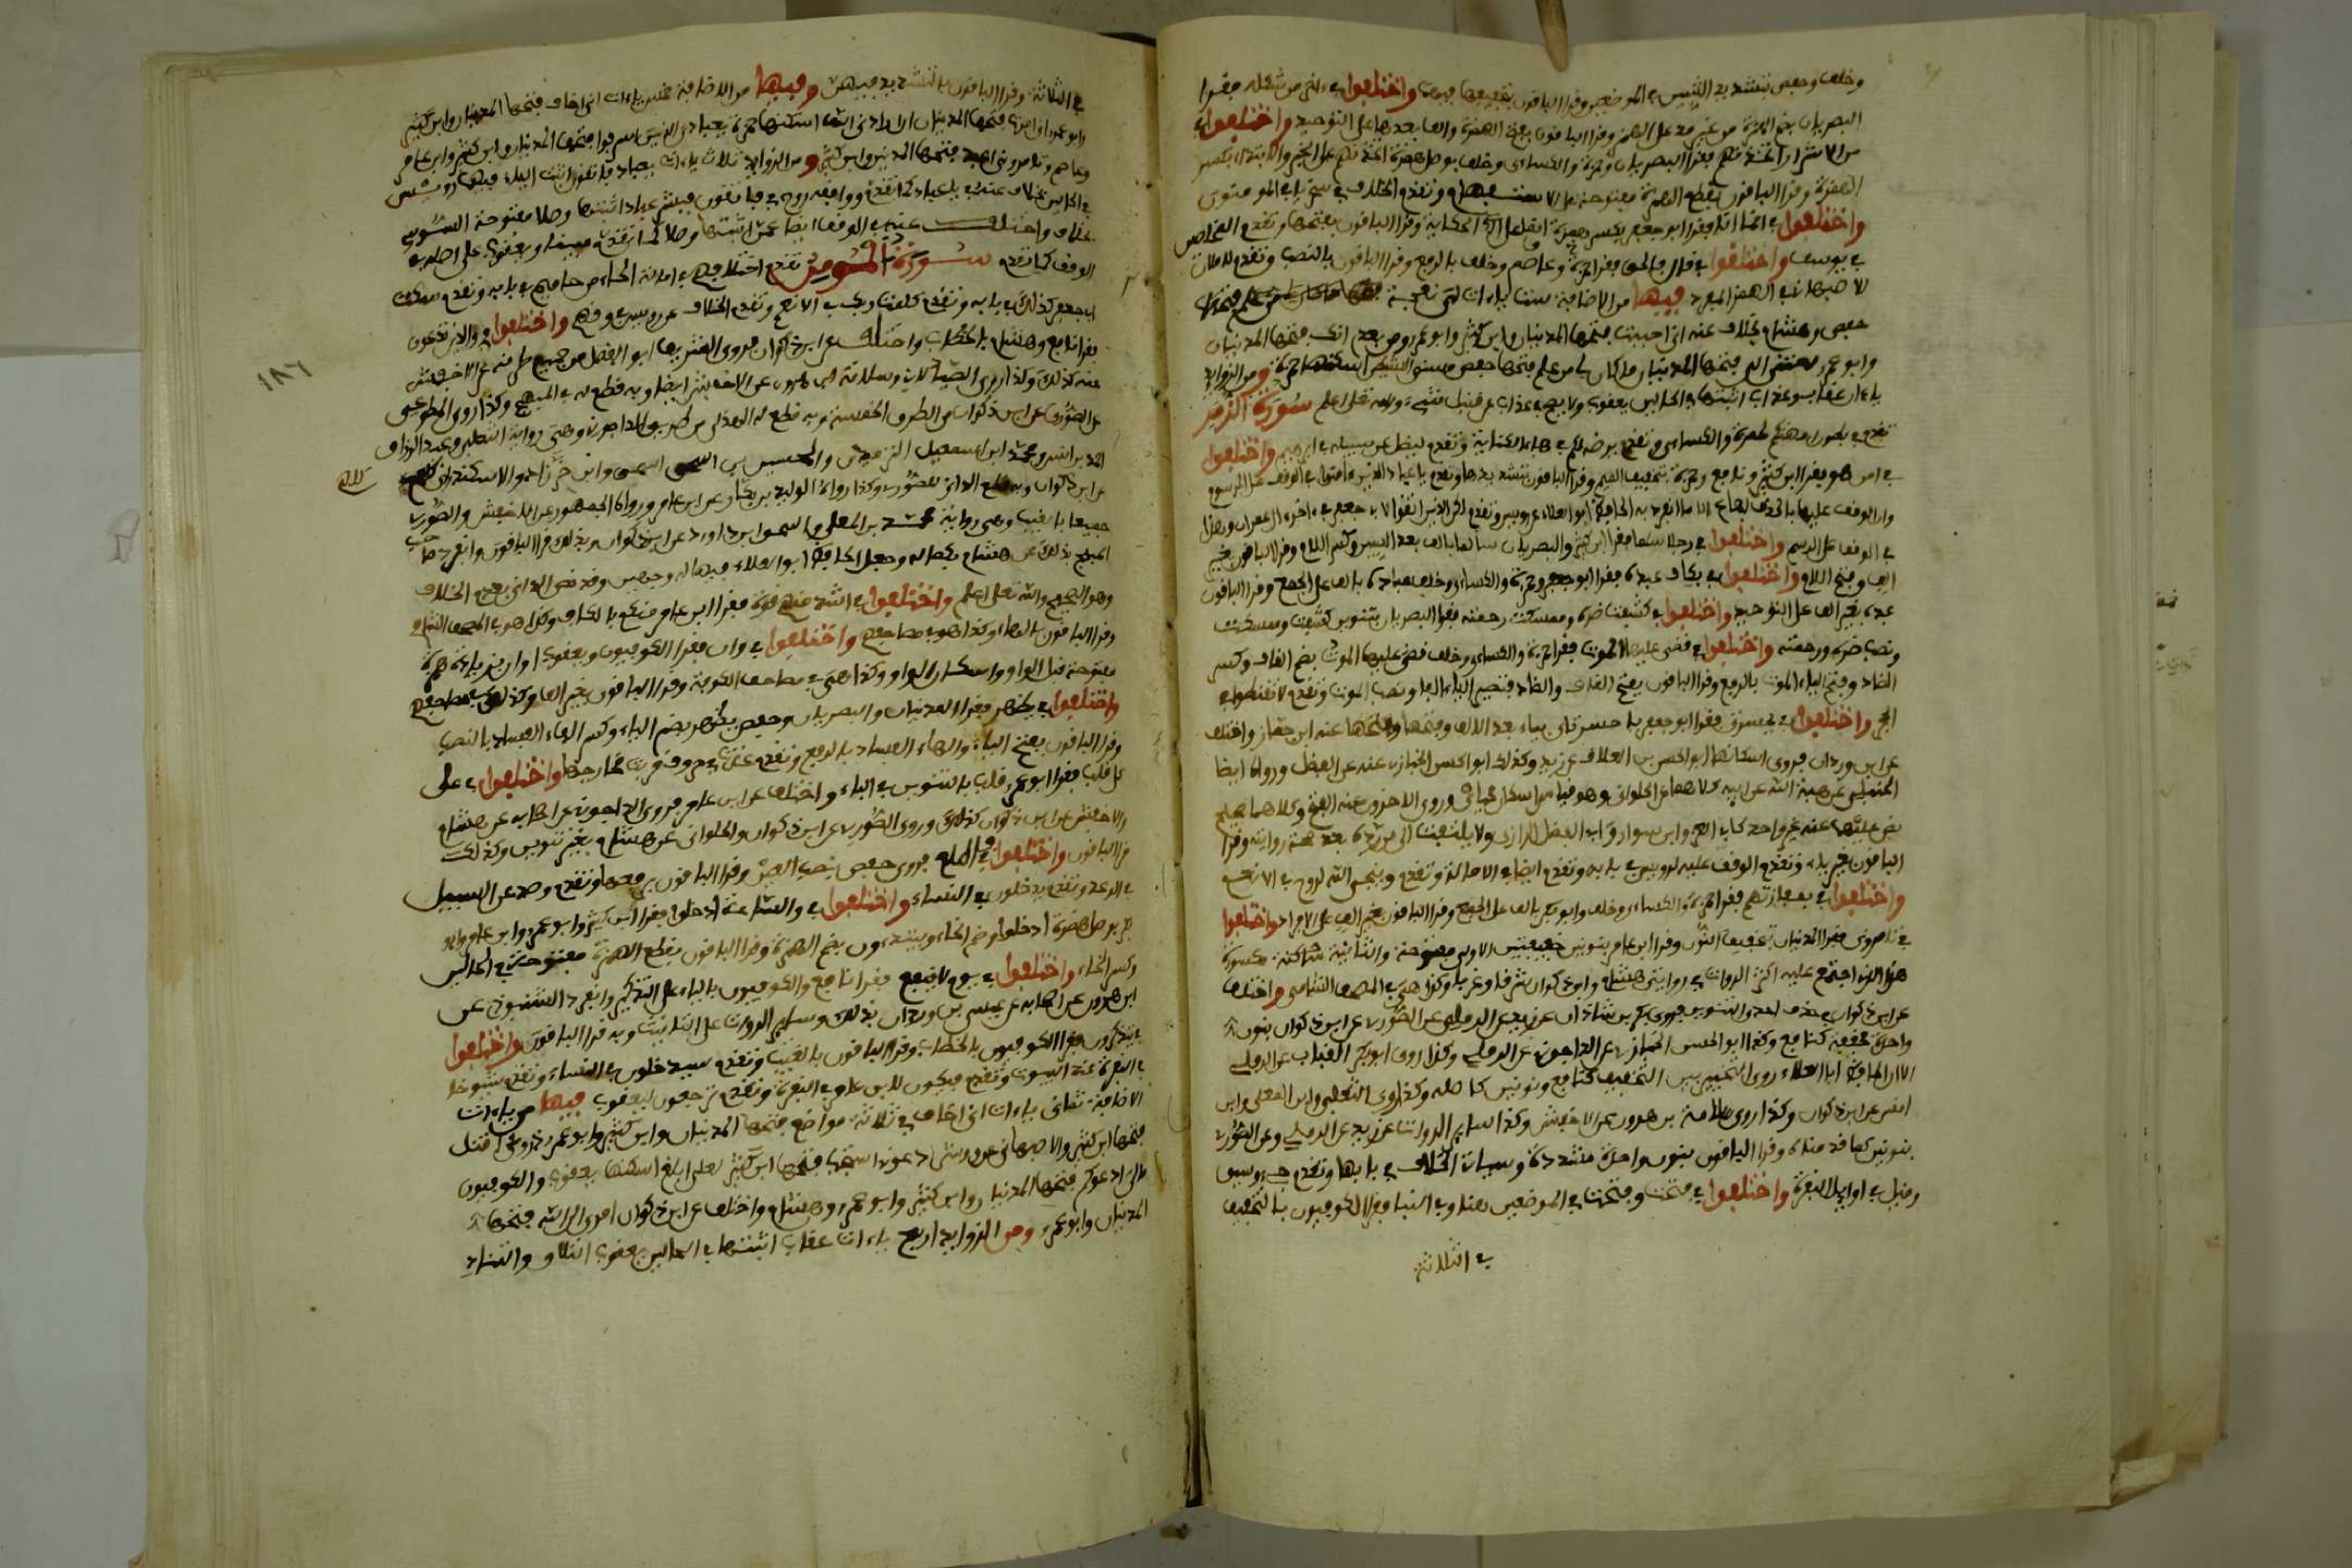 وخلف وحفص بتشديد السين في الموضعين وقرا الباقون بتخفيفها فيهما واختلفوا في واخر من شكله فقرا
البصريان بضم الهمزة من غير مد على الجمع وقرا الباقون بفتح الهمزة والف بعدها على التوحيد واختلفوا في
من الاشرار اتخذناهم فقرا البصريان وحمزة والكسائي وخلف بوصل همزة اتخذناهم على الخبر والابتداء بكسر
الهمزة وقرا الباقون بقطع الهمزة مفتوحة على الاستفهام وتقدم الخلاف في سخريا في المومنون
واختلفوا في انما انا فقرا ابو جعفر بكسر همزة انما على الحكاية وقرا الباقون بفتحها وتقدم المخلصين
في يوسف واختلفوا في قال فالحق فقرا حمزة وعاصم وخلف بالرفع وقرا الباقون بالنصب وتقدم لاملان
للاصبهاني في الهمز المفرد فيها من الاضافة ست ياءات لي نعجة
حفص وهشام بخلاف عنه اني احببت فتحها المدنيان وابن كثير وابو عمرو من بعدي انك فتحها المدنيان
وابو عمرو لعنتي الى فتحها المدنيان ما كان لي من علم فتحها حفص مسني الشيطان اسكنها حمزة ومن الزوايد
ياءان عقاب وعذاب اثبتها في الحالين يعقوب ولا يصح في عذاب عن قنبل شيء والله تعلى اعلم سورة الزمر
تقدم في بطون امهتكم لحمزة والكسائي وتقدم يرضه لكم في هاء الكناية وتقدم ليضل عن سبيله في ابرهيم واختلفوا
في امن هو فقرا ابن كثير ونافع وحمزة بتخفيف الميم وقرا الباقون بتشديدها وتقدم يا عباد الذين امنوا في الوقف على المرسوم
وان الوقف عليها بالحذف اجماع الا ما انفرد به الحافظ ابو العلاء عن رويس وتقدم لكن الذين اتقوا لابي جعفر في اخر ال عمران وتقدم
في الوقف على الرسم واختلفوا في ورجلا سلما فقرا ابن كثير والبصريان سالما بالف بعد السين وكسر اللام وقرا الباقون بغير
الف وفتح اللام واختلفوا في بكاف عبده فقرا ابو جعفر وحمزة والكسائي وخلف عباده بالف على الجمع وقرا الباقون
عبده بغير الف على التوحيد واختلفوا في كشفت ضره وممسكت رحمته فقرا البصريان بتنوين كشفت وممسكت
ونصب ضره ورحمته واختلفوا في قضى عليها الموت فقرا حمزة والكسائي وخلف قضي عليها الموت بضم القاف وكسر
الضاد وفتح الياء الموت بالرفع وقرا الباقون بفتح القاف والضاد فتصير الياء الفا ونصب الموت وتقدم لا تقنطوا في
الحجر واختلفوا في يحسرتى فقرا ابو جعفر يا حسرتاى بياء بعد الالف وفتحها عنه ابن جماز واختلف
عن ابن وردان فروى اسكانها ابو الحسن بن العلاف عن زيد وكذلك ابو الحسن الخبازي عنه عن الفضل ورواه ايضا
الحنبلي عن هبة الله عن ابيه كلاهما عن الحلواني وهو قياس اسكان محياي وروى الاخرون عنه الفتح وكلاهما صحيح
نص عليهما عنه غير واحد كابي العز وابن سوار وابي الفضل الرازي ولا يلتفت الى من رده بعد صحة روايته وقرا
الباقون بغير ياء وتقدم الوقف عليه لرويس في بابه وتقدم ايضا في الامالة وتقدم وينجي الله لروح في الانعام
واختلفوا في بمفازتهم فقرا حمزة والكسائي وخلف وابو بكر بالف على الجمع وقرا الباقون بغير الف على الافراد واختلفوا
في تامروني فقرا المدنيان بتخفيف النون وقرا ابن عامر بنونين خفيفتين الاولى مفتوحة والثانية مكسورة
هذا الذي اجتمع عليه اكثر الرواة في روايتي هشام وابن ذكوان شرقا وغربا وكذا هي في المصحف الشامي واختلف
عن ابن ذكوان في حذف احدى النونين فروى بكر بن شاذان عن زيد عن الرملي عن الصوري عن ابن ذكوان بنون
واحدة مخففة كنافع وكذا ابو الحسن الخبازي عن الداجوني عن الرملي وكذا روى ابو بكر القباب عن الرملي
الا ان الحافظ ابا العلاء روى التخيير بين التخفيف كنافع ونونين كما صله وكذا روى الثعلبي وابن المعلى وابن
انس عن ابن ذكوان وكذا روى سلامة بن هرون عن الاخفش وكذا ساير الرواة عن زيد عن الرملي وعن الصوري
بنونين كما قدمناه وقرا الباقون بنون واحدة مشددة وسيات الخلاف في بابها وتقدم جيء وسيق
وقيل في اوايل البقرة واختلفوا في فتحت وفتحت في الموضعين هنا وفي النبا فقرا الكوفيون بالتخفيف
في الثلاثة
في الثلاثة وقرا الباقون بالتشديد فيهن وفيها من الاضافة خمس ياءات اني اخاف فتحها المدنيان وابن كثير
وابو عمرو اني امرت فتحها المدنيان ان ارادني الله اسكنها حمزة يعبادي الذين اسرفوا فتحها المدنيان وابن كثير وابن عامر
وعاصم وتامروني اعبد فتحها المدنيان وابن كثير ومن الزوايد ثلاث ياءات يعباد فاتقون اثبت الياء فيهما رويس
في الحالين بخلاف عنه في يا عباد كما تقدم ووافقه روح في فاتقون فبشر عباد اثبتها وصلا مفتوحة السوسي
بخلاف واختلف عنه في الوقف ايضا عمن اثبتها وصلا كما تقدم مبينا ويعقوب على اصله في
الوقف كما تقدم سورة المومن تقدم اختلافهم في امالة الحاء من حاميم في بابه وتقدم سكت
ابي جعفر كذلك في بابه وتقدم كلمت ربك في الانعم وتقدم الخلاف عن رويس في وقهم واختلفوا في والذين تدعون
فقرا نافع وهشام بالخطاب واختلف عن ابن ذكوان فروى الشريف ابو الفضل من جميع طرقه عن الاخفش
عنه كذلك وكذا روى الصيدلاني وسلامة بن هرون عن الاخفش ايضا وبه قطع له في المبهج وكذا روى المطوعي
عن الصوري عن ابن ذكوان من الطرق الخمسة وبه قطع له الهذلي من طريق الداجوني وهي رواية الثعلبي وعبد الرزاق
احمد بن انس ومحمد ابن اسمعيل الترمذي والحسين بن اسحق وابن خرزاد والاسكندراني كلهم
عن ابن ذكوان وبه قطع الداني للصوري وكذا رواه الوليد بن بكار عن ابن عامر ورواه الجمهور عن الاخفش والصوري
جميعا بالغيب وهي رواية محمد بن المعلى واسحق بن داود عن ابن ذكوان وبذلك قرا الباقون وانفرد صاحب
المبهج بذلك عن هشام بكماله وجعل الحافظ ابو العلاء فيها له وجهين وقد نص الداني بعدم الخلاف
وهو الصحيح والله تعلى اعلم واختلفوا في اشد منهم قوة فقرا ابن عامر منكم بالكاف وكذا هو في المصحف الشامي
وقرا الباقون بالهاء وكذا هو في مصاحفهم واختلفوا في وان فقرا الكوفيون ويعقوب او ان بزيادة همزة
مفتوحة قبل الواو واسكان الواو وكذا هي في مصاحف الكوفة وقرا الباقون بغير الف وكذلك في مصاحفهم
واختلفوا في يظهر فقرا المدنيان والبصريان وحفص يظهر بضم الياء وكسر الهاء الفساد بالنصب
وقرا الباقون بفتح الياء والهاء الفساد بالرفع وتقدم عذت في حروف قربت مخارجها واختلفوا في على
كل قلب فقرا ابو عمرو قلب بالتنوين في الباء واختلف عن ابن عامر فروى الداجوني عن اصحابه عن هشام
والاخفش عن ابن ذكوان كذلك وروى الصوري عن ابن ذكوان والحلواني عن هشام بغير تنوين وكذلك
قرا الباقون واختلفوا في فاطلع فروى حفص بنصب العين وقرا الباقون برفعها وتقدم وصد عن السبيل
في الرعد وتقدم يدخلون في النساء واختلفوا في والساعة ادخلوا فقرا ابن كثير وابو عمرو وابن عامر وابو
بكر بوصل همزة ادخلوا وضم الخاء ويبتدءون بضم الهمزة وقرا الباقون بقطع الهمزة مفتوحة في الحالين
وكسر الخاء واختلفوا في يوم لا ينفع فقرا نافع والكوفيون بالياء على التذكير وانفرد الشنبوذي عن
ابن هرون عن اصحابه عن عيسى بن وردان بذلك وساير الرواة على التانيث وبه قرا الباقون واختلفوا
في يتذكرون فقرا الكوفيون بالخطاب وقرا الباقون بالغيب وتقدم سيدخلون في النساء وتقدم شيوخا
في البقرة عند البيوت وتقدم فيكون لابن عامر في البقرة وتقدم ترجعون ليعقوب فيها من ياءات
الاضافة ثماني ياءات اني اخاف في ثلاثة مواضع فتحها المدنيان وابن كثير وابو عمرو ذروني اقتل
فتحها ابن كثير والاصبهاني عن ورش ادعوني استجب فتحها ابن كثير لعلي ابلغ اسكنها يعقوب والكوفيون
مالي ادعوكم فتحها المدنيان وابن كثير وابو عمرو وهشام واختلف عن ابن ذكوان امري الى الله فتحها
المدنيان وابو عمرو ومن الزوايد اربع ياءات عقاب اثبتها في الحالين يعقوب التلاق والتناد
١٨٦